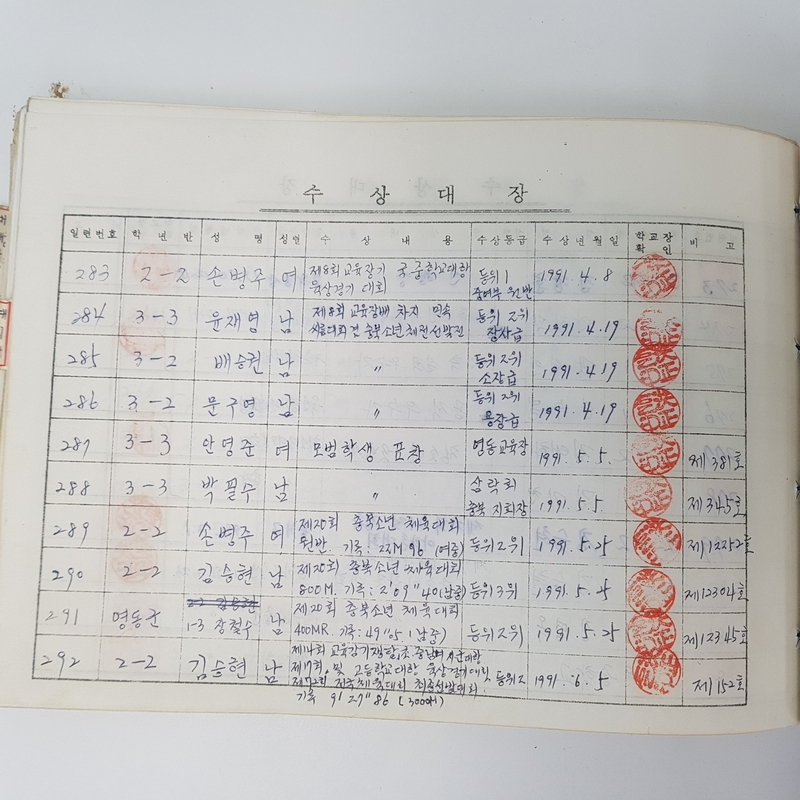 수 상 대 장
일련번호 학 년 반 성 명 성별 수 상 내 용 수상등급 수 상 년 월 일 학교장 확 인 비 고
283 2-2 손병주 여 제8회 교육감기 국·중학교대항 등위 1 1991. 4. 8
육상경기 대회 중여부 원반
284 3-3 윤재영 남 제8회 교육감배 차지 민속 등위 2위 1991. 4. 19
씨름대회 겸 충북소년체전선발전 장사급
285 3-2 배승권 남 〃 등위 2위 1991. 4. 19
소장급
286 3-2 문구영 남 〃 등위 2위 1991. 4. 19
용장급
287 3-3 안영준 여 모범학생 표창 영동교육장 1991. 5. 5. 제381호
288 3-3 박필수 남 〃 삼락회 1991. 5. 5. 제345호
충북지회장
289 2-2 손병주 여 제20회 충북소년 체육대회 등위2위 1991. 5. 25 제12252호
원반. 기록: 22M 96 (여중)
290 2-2 김승현 남 제20회 충북소년 체육대회 등위3위 1991. 5. 25 제12304호
800M. 기록: 2'09"40(남중)
291 영동군 1-3 장철수 남 제20회 충북소년 체육대회 등위2위 1991. 5. 25 제12345호
400MR. 기록: 49"05 (남중)
292 2-2 김승현 남 제14회 교육감기쟁탈 시군대항 등위2 1991. 6. 5 제152호
제17회 및 고등학교대항 육상경기대회
제72회 전국체육대회 최종선발대회.
기록 9' 27" 86 (3000M)